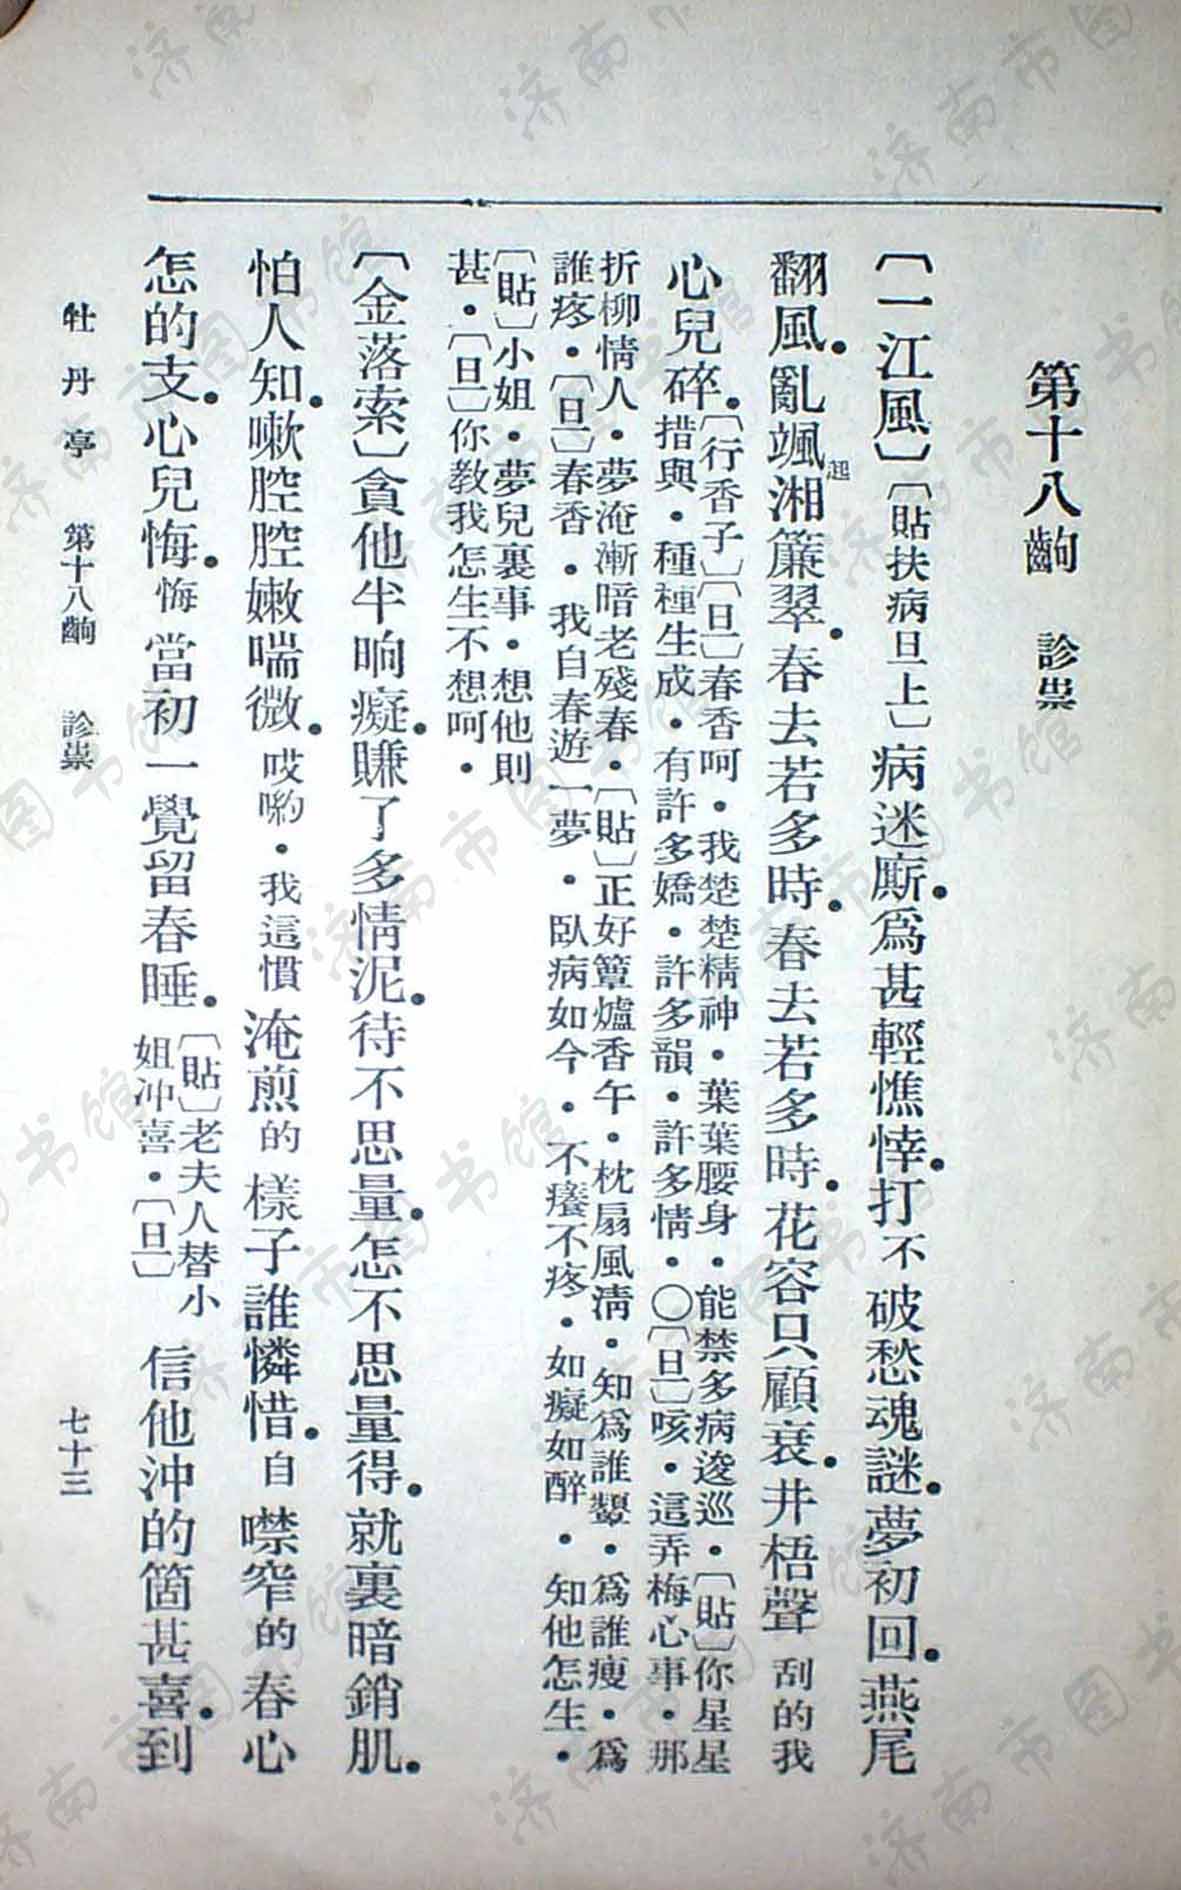 第十八齣　診祟
〔一江風〕〔貼扶病旦上〕病迷廝。爲甚輕憔悴。打不破愁魂謎。夢初回。燕尾
翻風。亂颯起湘簾翠。春去若多時。春去若多時。花容只顧衰。井梧聲刮的我
心兒碎。〔行香子〕〔旦〕春香呵・我楚楚精神・葉葉腰身・能禁多病逡巡・〔貼〕你星星
措與・種種生成・有許多嬌・許多韻・許多情・〇〔旦〕咳・這弄梅心事・那
折柳情人・夢淹漸暗老殘春・〔貼〕正好簟爐香午・枕扇風清・知爲誰顰・爲誰瘦・爲
誰疼・〔旦〕春香・我自春遊一夢・臥病如今・不癢不疼・如癡如醉・知他怎生・
〔貼〕小姐・夢兒裏事・想他則
甚・〔旦〕你教我怎生不想呵・
〔金落索〕貪他半晌癡。賺了多情泥。待不思量。怎不思量得。就裏暗銷肌。
怕人知。嗽腔腔嫩喘微。哎喲・我這慣淹煎的樣子誰憐惜。自噤窄的春心
怎的支。心兒悔。悔當初一覺留春睡。〔貼〕老夫人替小
姐冲喜・〔旦〕信他沖的箇甚喜。到
牡丹亭　第十八齣　診祟　七十三
济南市图书馆